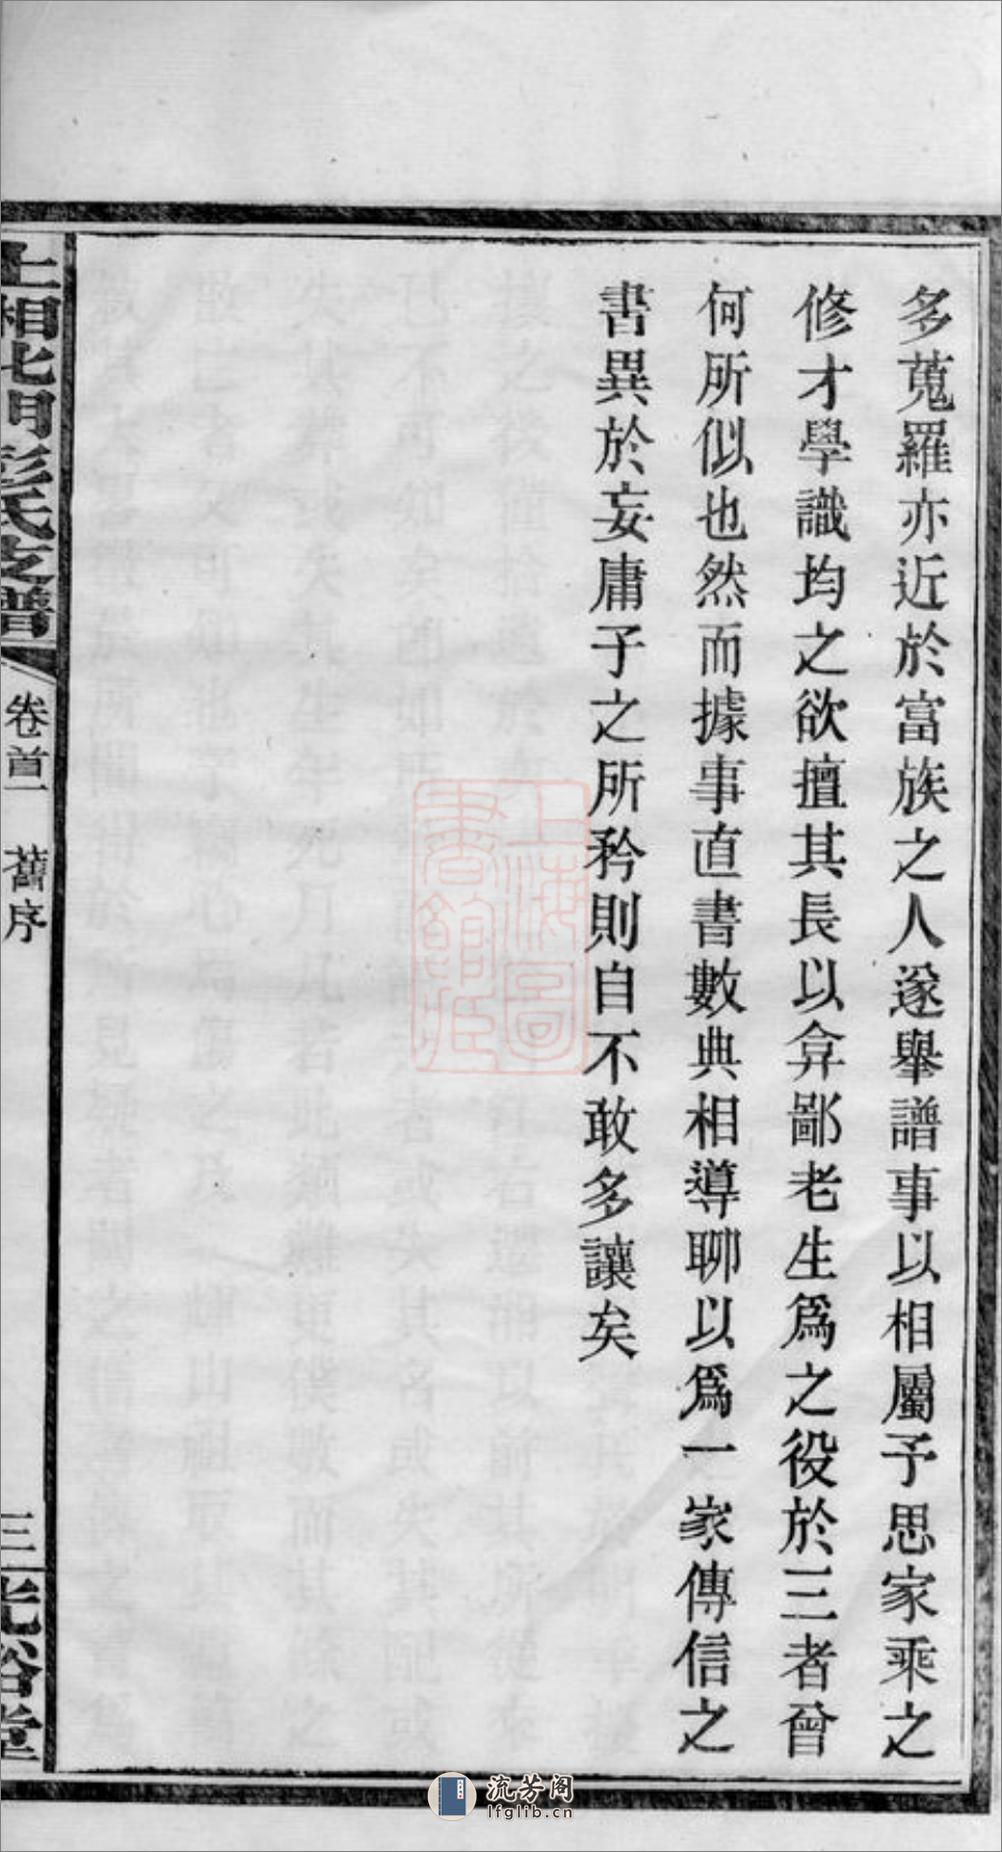 多蒐羅亦近於富族之人遂舉譜事以相屬予思家乘之
修才學識均之欲擅其長以弇鄙老生爲之役於三者曾
何所似也然而據事直書數典相導聊以爲一家傳信之
書異於妄庸子之所矜則自不敢多讓矣
上湘七閒彭氏支譜
卷首一 舊序
三
光裕堂
上海圖書館藏
流芳阁
lfglib.cn